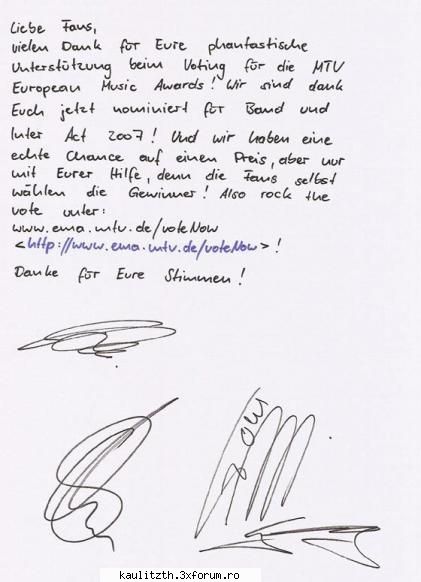 Liebe Fans,
vielen Dank für Eure phantastische
Unterstützung beim Voting für die MTV
European Music Awards! Wir sind dank
Euch jetzt nominiert für Band und
Inter Act 2007! Und wir haben eine
echte Chance auf einen Preis, aber nur
mit Eurer Hilfe, denn die Fans selbst
wählen die Gewinner! Also rock the
vote unter:
www.ema.mtv.de/voteNow
<http://www.ema.mtv.de/voteNow>!
Danke für Eure Stimmen!
kaulitzth.3xforum.ro